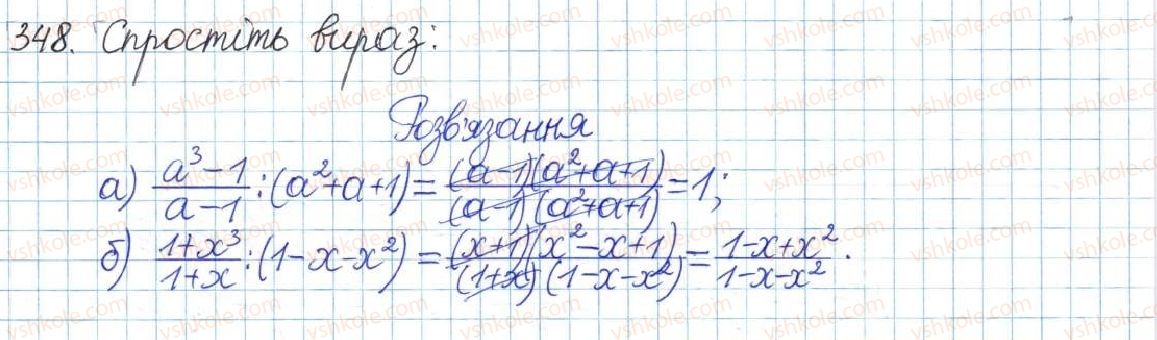 348. Спростіть вираз:
Розв'язання
а) \frac{a^3-1}{a-1}:(a^2+a+1)=\frac{(a-1)(a^2+a+1)}{(a-1)(a^2+a+1)}=1;
б) \frac{1+x^3}{1+x}:(1-x-x^2)=\frac{(x+1)(x^2-x+1)}{(1+x)(1-x-x^2)}=\frac{1-x+x^2}{1-x-x^2}.
vshkole.com